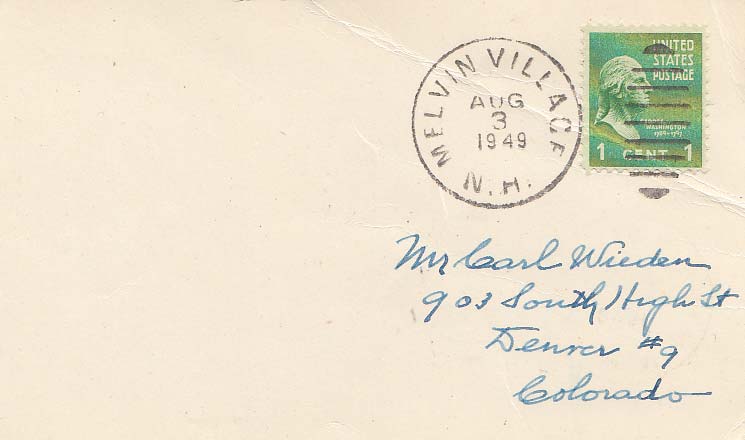 MELVIN VILLAGE
AUG
3
1949
N.H.
UNITED
STATES
POSTAGE
GEORGE
WASHINGTON
1789-1797
1 CENT 1
Mr Carl Wieden
903 South High St
Denver #9
Colorado